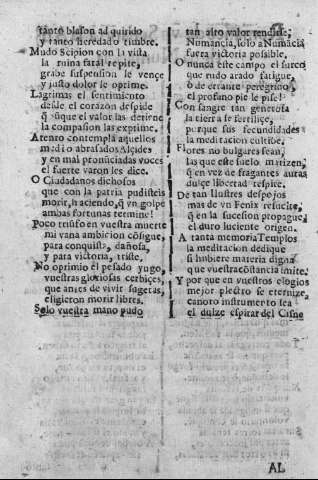 tanto blason adquirido
y tanto heredado timbre.
Mudo Scipion con la vista
la ruina fatal repite,
grabe suspension le vençe
y justo dolor le oprime.
Lagrimas el sentimiento
desde el corazon despide
q̃ aũque el valor las detiene
la compasion las exprime.
Atento contempla aquellos
medio abrasados Alçides
y en mal pronũciadas voces
el fuerte varon les dice.
O Ciudadanos dichosos
que con la patria pudisteis
morir, haciendo, q̃ vn golpe
ambas fortunas termine!
Poco triũfo en vuestra muerte
mi vana ambicion cõsigue,
para conquista, dañosa,
y para victoria, triste.
No oprimio el pesado yugo,
vuestras gloriosas cerbiçes,
que antes de vivir sugetas,
eligieron morir libres.
Solo vuestra mano pudo
tan alto valor rendirse,
Numancia, solo a Numãcia
fuera victoria posible.
O nunca este campo el surco
que rudo arado fatigue,
ò de errante peregrino,
el profano pie le pise!
Con sangre tan generosa
la tierra se fertiliçe,
porque sus fecundidades
la meditacion cultive.
Flores no bulgares sean,
las que este suelo matizen,
q̃ en vez de fragantes auras
dulçe libertad respire.
De tan Ilustres despojos
mas de vn Fenix resucite,
q̃ en la sucesion propague,
el duro luciente origen.
A tanta memoria Templos
la meditacion dedique
si hubiere materia digna
que vuestra cõstancia imite.
Y por que en vuestros elogios
mejor plectro se eternize,
canoro instrumento sea
el dulze espirar del Cisne
AL